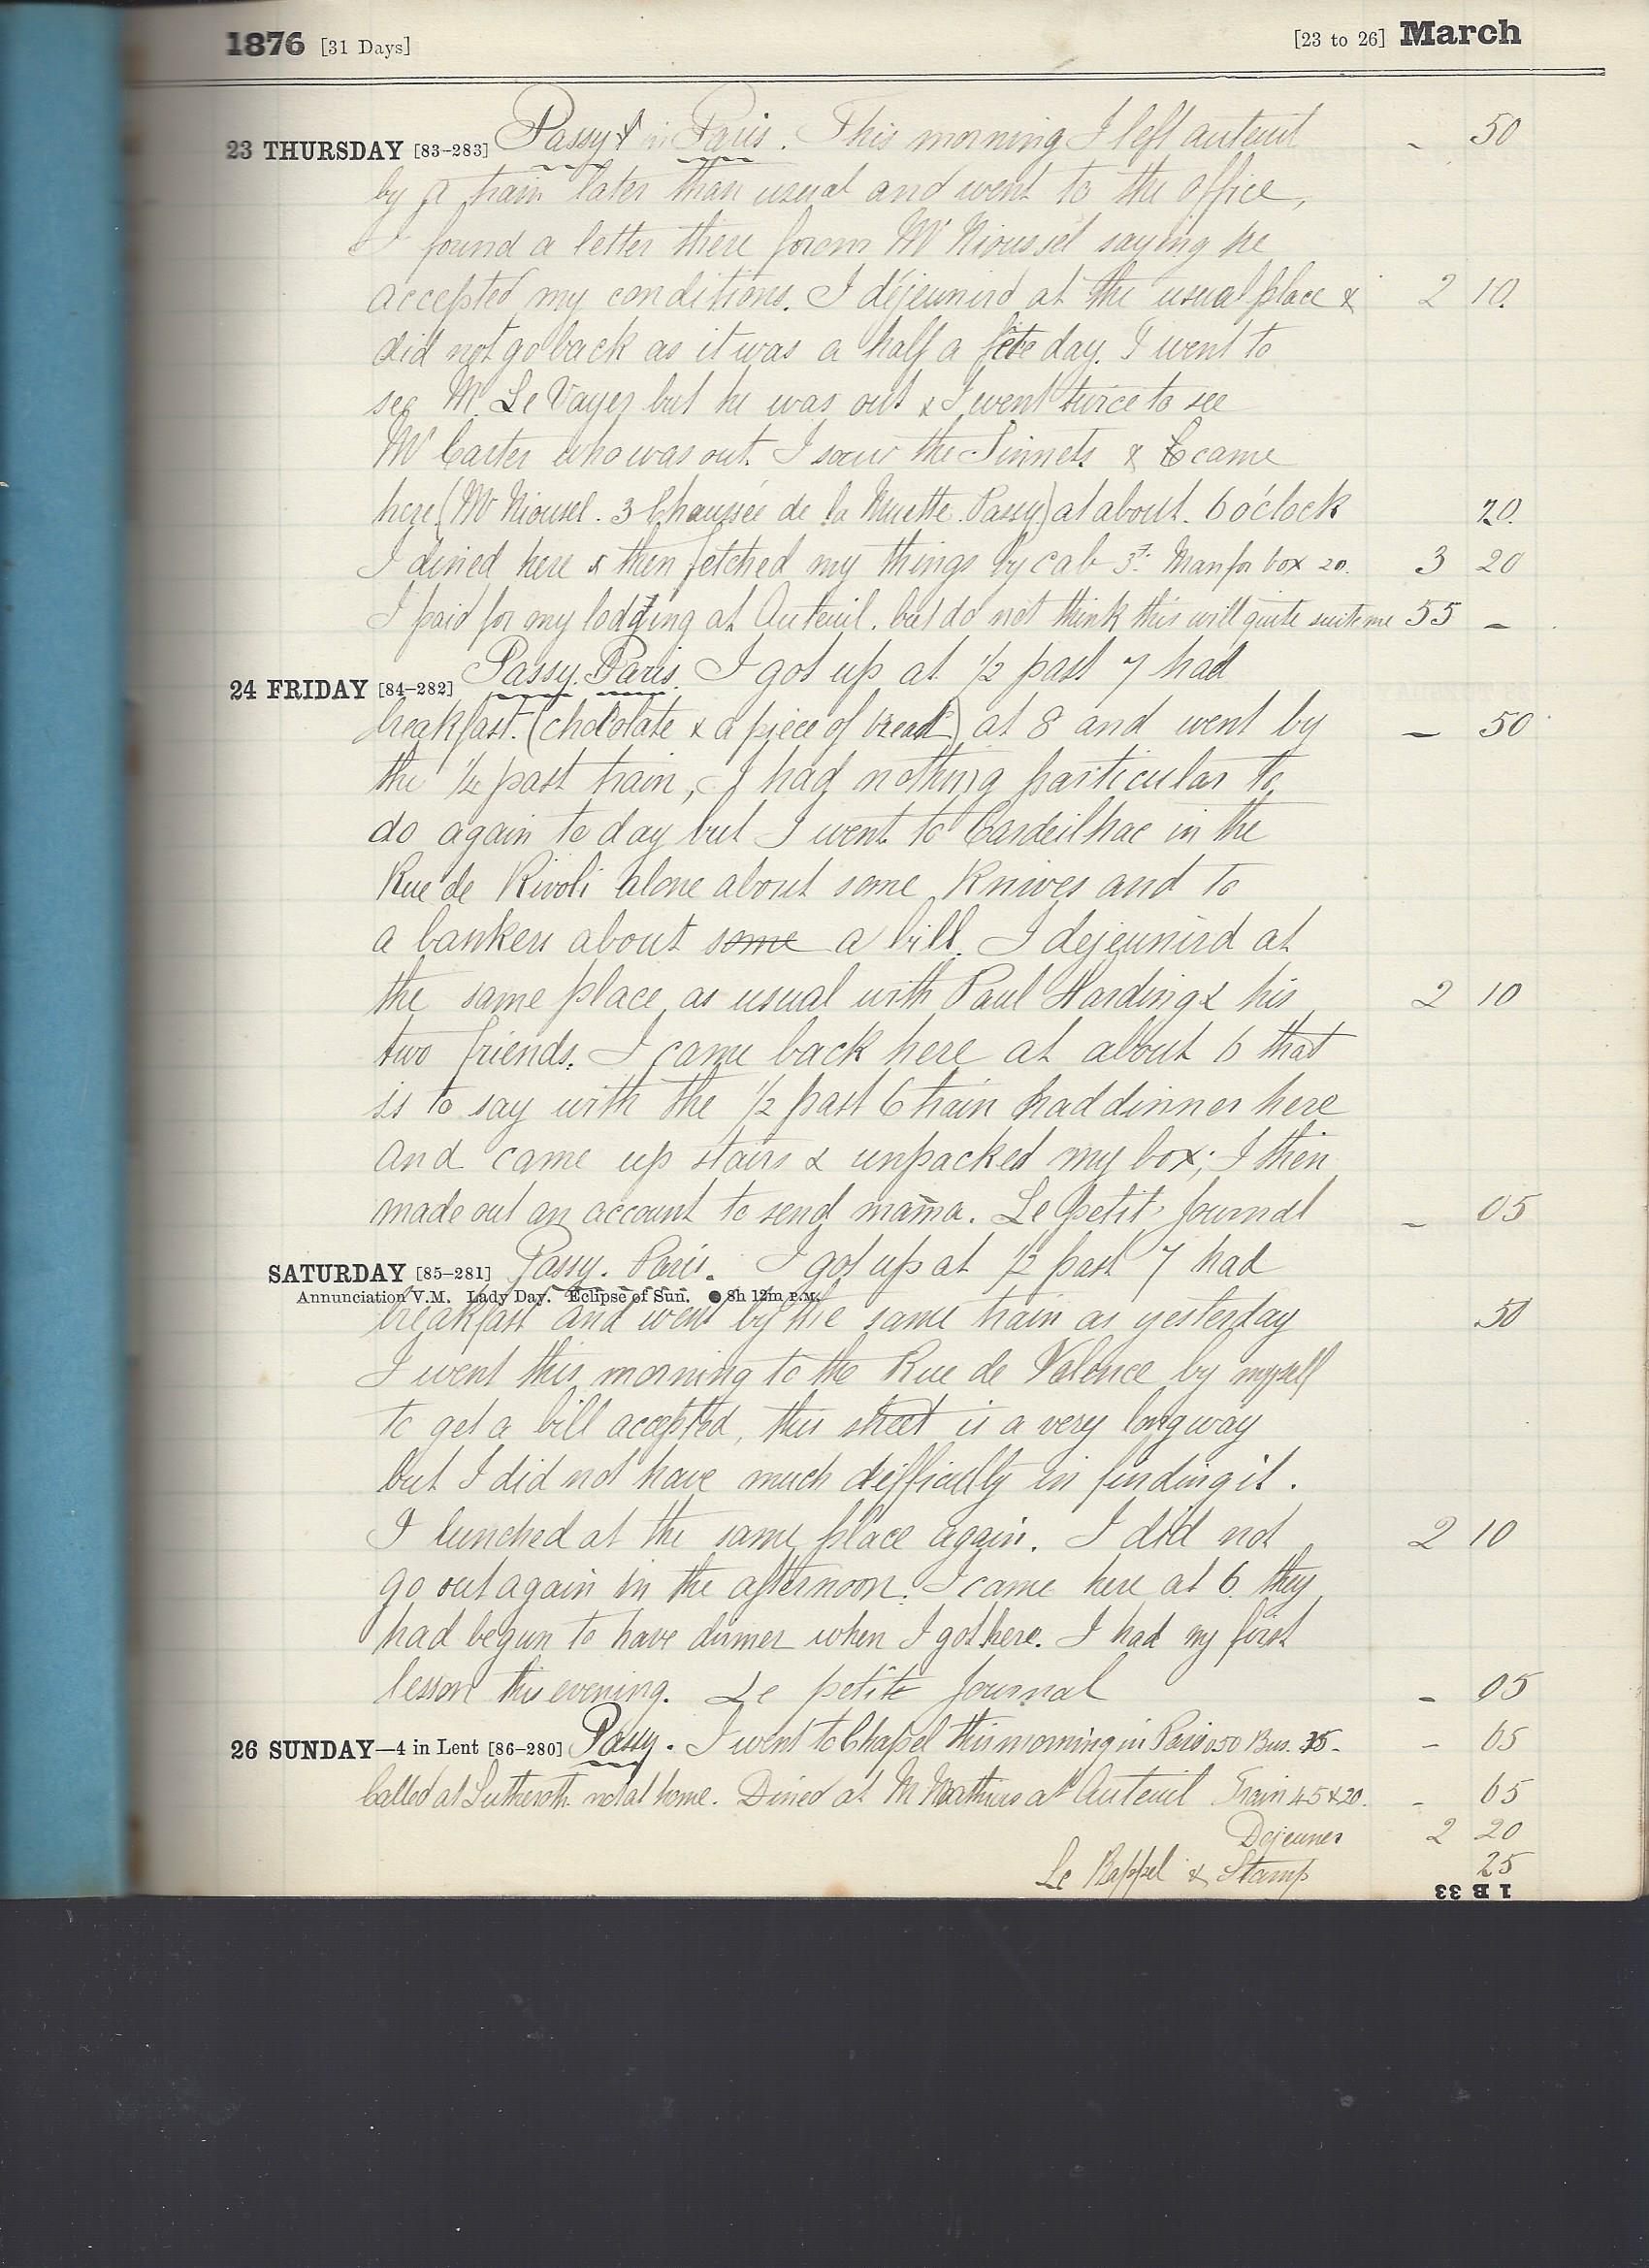 1876 [31 Days] [23 to 26] March
23 THURSDAY [83–283] Passy & in Paris. This morning I left auteuil - 50
by a train later than usual and went to the office,
I found a letter there from Mr Nioussel saying he
accepted my conditions. I déjeunérd at the usual place & 2 10.
did not go back as it was a half a fête day. I went to
see M. Le Vayer but he was out & I went twice to see
Mr Carter who was out. I saw the Sinnets & came
here (Mr Niousel. 3 Chaussée de la Muette. Passy) at about. 6 o'clock 20.
I dined here & then fetched my things by cab 3f. Man for box 20. 3 20
I paid for my lodging at Auteuil. but do not think this will quite suit me 55 -
24 FRIDAY [84–282] Passy. Paris. I got up at ½ past 7 had
breakfast. (chocolate & a piece of bread) at 8 and went by — 50
the ½ past train, I had nothing particular to
do again to day but I went to Cardeilhac in the
Rue de Rivoli alone about some Knives and to
a bankers about some a bill. I dejeunérd at
the same place as usual with Paul Harding & his 2 10
two friends. I came back here at about 6 that
is to say with the ½ past 6 train had dinner here
and came up stairs & unpacked my box; I then
made out an account to send mama. Le petit Journal - 05
SATURDAY [85–281] Passy. Paris. I got up at ½ past 7 had
Annunciation V.M. Lady Day. Eclipse of Sun. ● 8h 12m P.M.
breakfast and went by the same train as yesterday .50
I went this morning to the Rue de Valence by myself
to get a bill accepted, this street is a very long way
but I did not have much difficulty in finding it.
I lunched at the same place again. I did not 2 10
go out again in the afternoon. I came here at 6 they
had begun to have dinner when I got here. I had my first
lesson this evening. Le petit Journal - 05
26 SUNDAY—4 in Lent [86–280] Passy. I went to Chapel this morning in Paris 0.50 Bus. 15 - - 65
Called at not at home. Dined at M. Mathius at Auteuil Train 45 & 20. - 65
Dejeuner 2 20
Le Rappel & Stamp 25
33 B 1